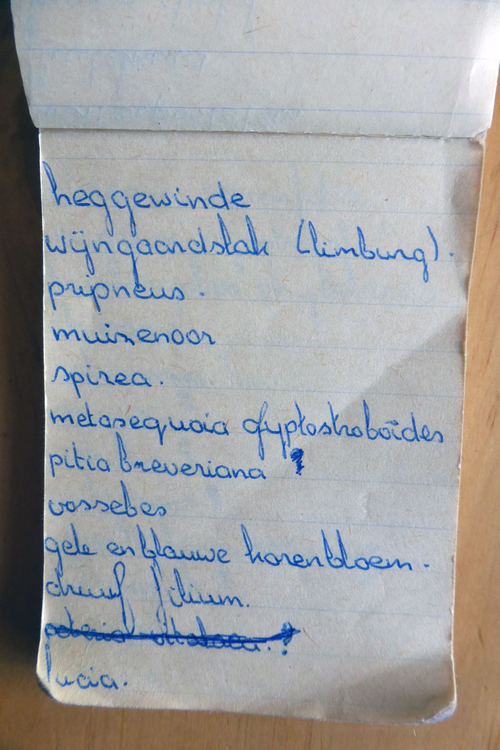 heggewinde
wijngaardslak (limburg).
pripneus.
muizenoor
spirea.
metasequoia glyptostroboïdes
pitia breveriana
vossebes
gele en blauwe korenbloem.
druuf filium.
lucia.